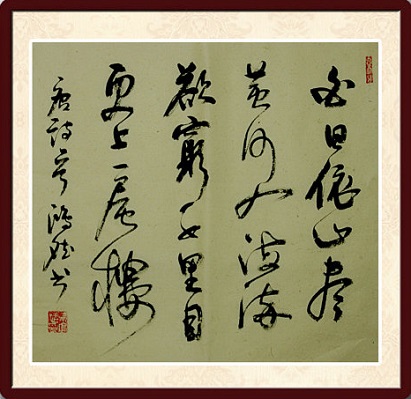 白日依山尽
黄河入海流
欲窮千里目
更上一层樓
唐诗 书